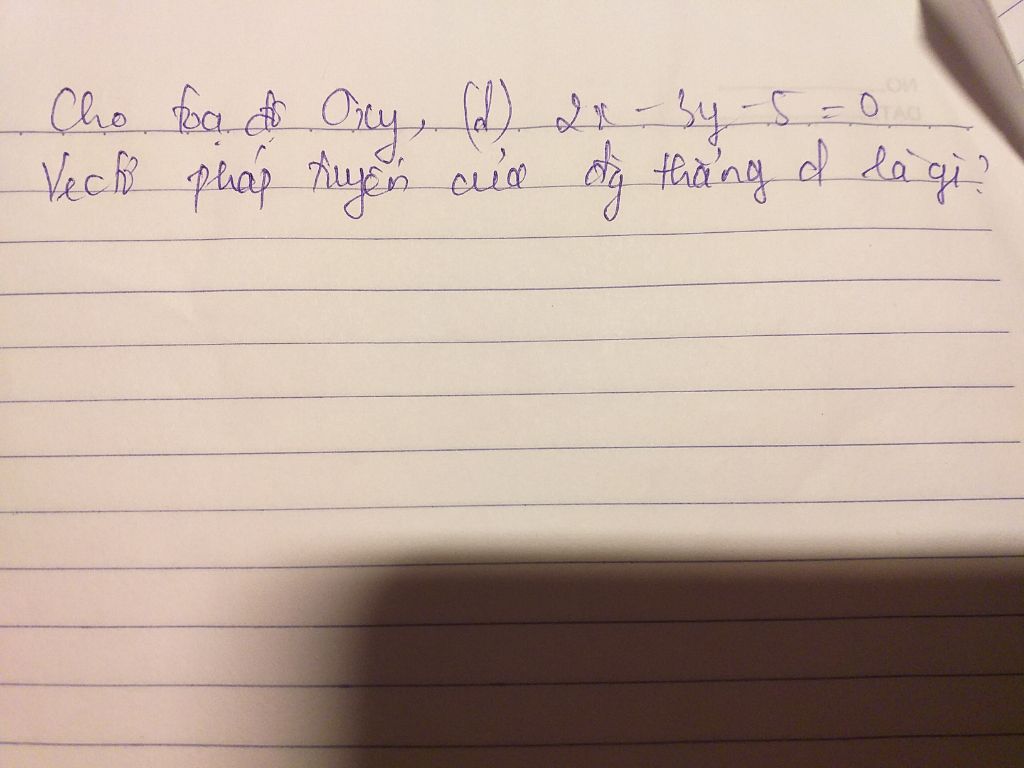 Cho toạ độ Oxy, (d) 2x - 3y - 5 = 0
Vectơ pháp tuyến của đg thẳng d là gì?